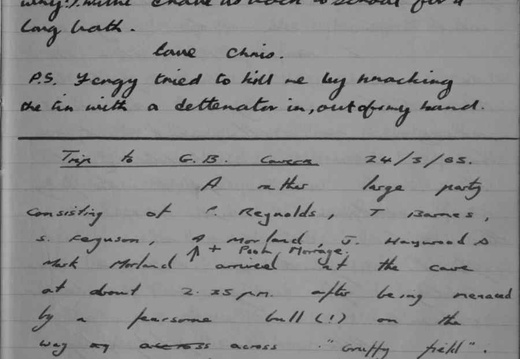 why?). write
long bath.
love Chris.
P.S. Fergy tried to kill me by knocking
the tin with a dettenator in, out of my hand.
Trip to G.B. Cavern 24/5/65.
A rather large party
consisting of P. Reynolds, T Barnes,
S. Ferguson, A Morland, J. Haywood &
+ Pooh Morage.
Mark Morland arrived at the cave
at about 2.25 pm. after being menaced
by a fearsome bull (!) on the
way across across "Gruffy field".